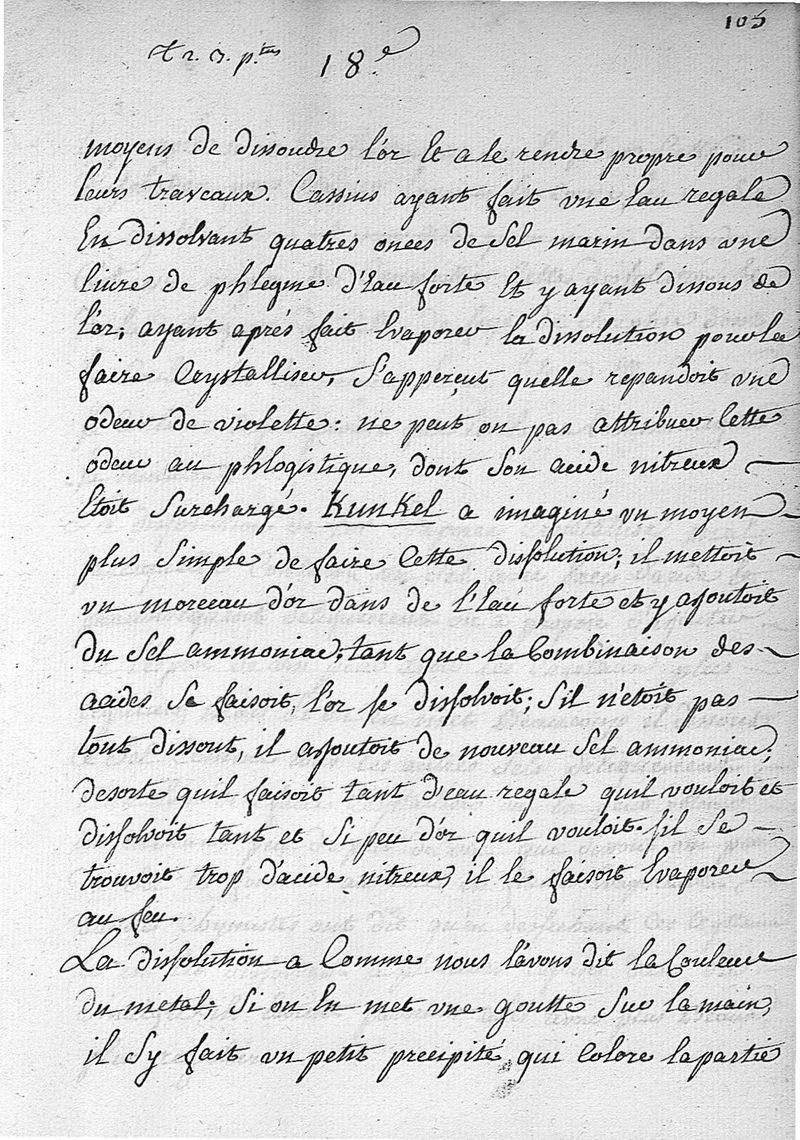 105
Tr. 3. p.tes 18.e
moyens de dissoudre l'or Et a le rendre propre pour
leurs traveaux. Cassius ayant fait vne Eau regale
En dissolvant quatres onces de Sel marin dans vne
livre de phlegme d'Eau forte Et y ayant dissous de
l'or; ayant aprés fait Evaporer la dissolution pour la
faire Crystalliser, S'apperçut quelle repandoit vne
odeur de violette: ne peut on pas attribuer Cette
odeur au phlogistique, dont Son acide nitreux
Etoit Surchargé. Kunkel a imaginé vn moyen
plus Simple de faire Cette dissolution; il mettoit
vn morceau d'or dans de l'Eau forte et y ajoutoit
du Sel ammoniac; tant que la Combinaison des
acides Se faisoit, l'or se dissolvoit; S'il n'etoit pas
tout dissout, il ajoutoit de nouveau Sel ammoniac;
desorte quil faisoit tant d'eau regale quil vouloit et
dissolvoit tant et Si peu d'or quil vouloit. s'il Se
trouvoit trop d'acide nitreux, il le faisoit Evaporer
au feu.
La dissolution a Comme nous l'avons dit la Couleur
du metal; Si on En met vne goutte Sur la main,
il Sy fait vn petit precipité qui Colore la partie